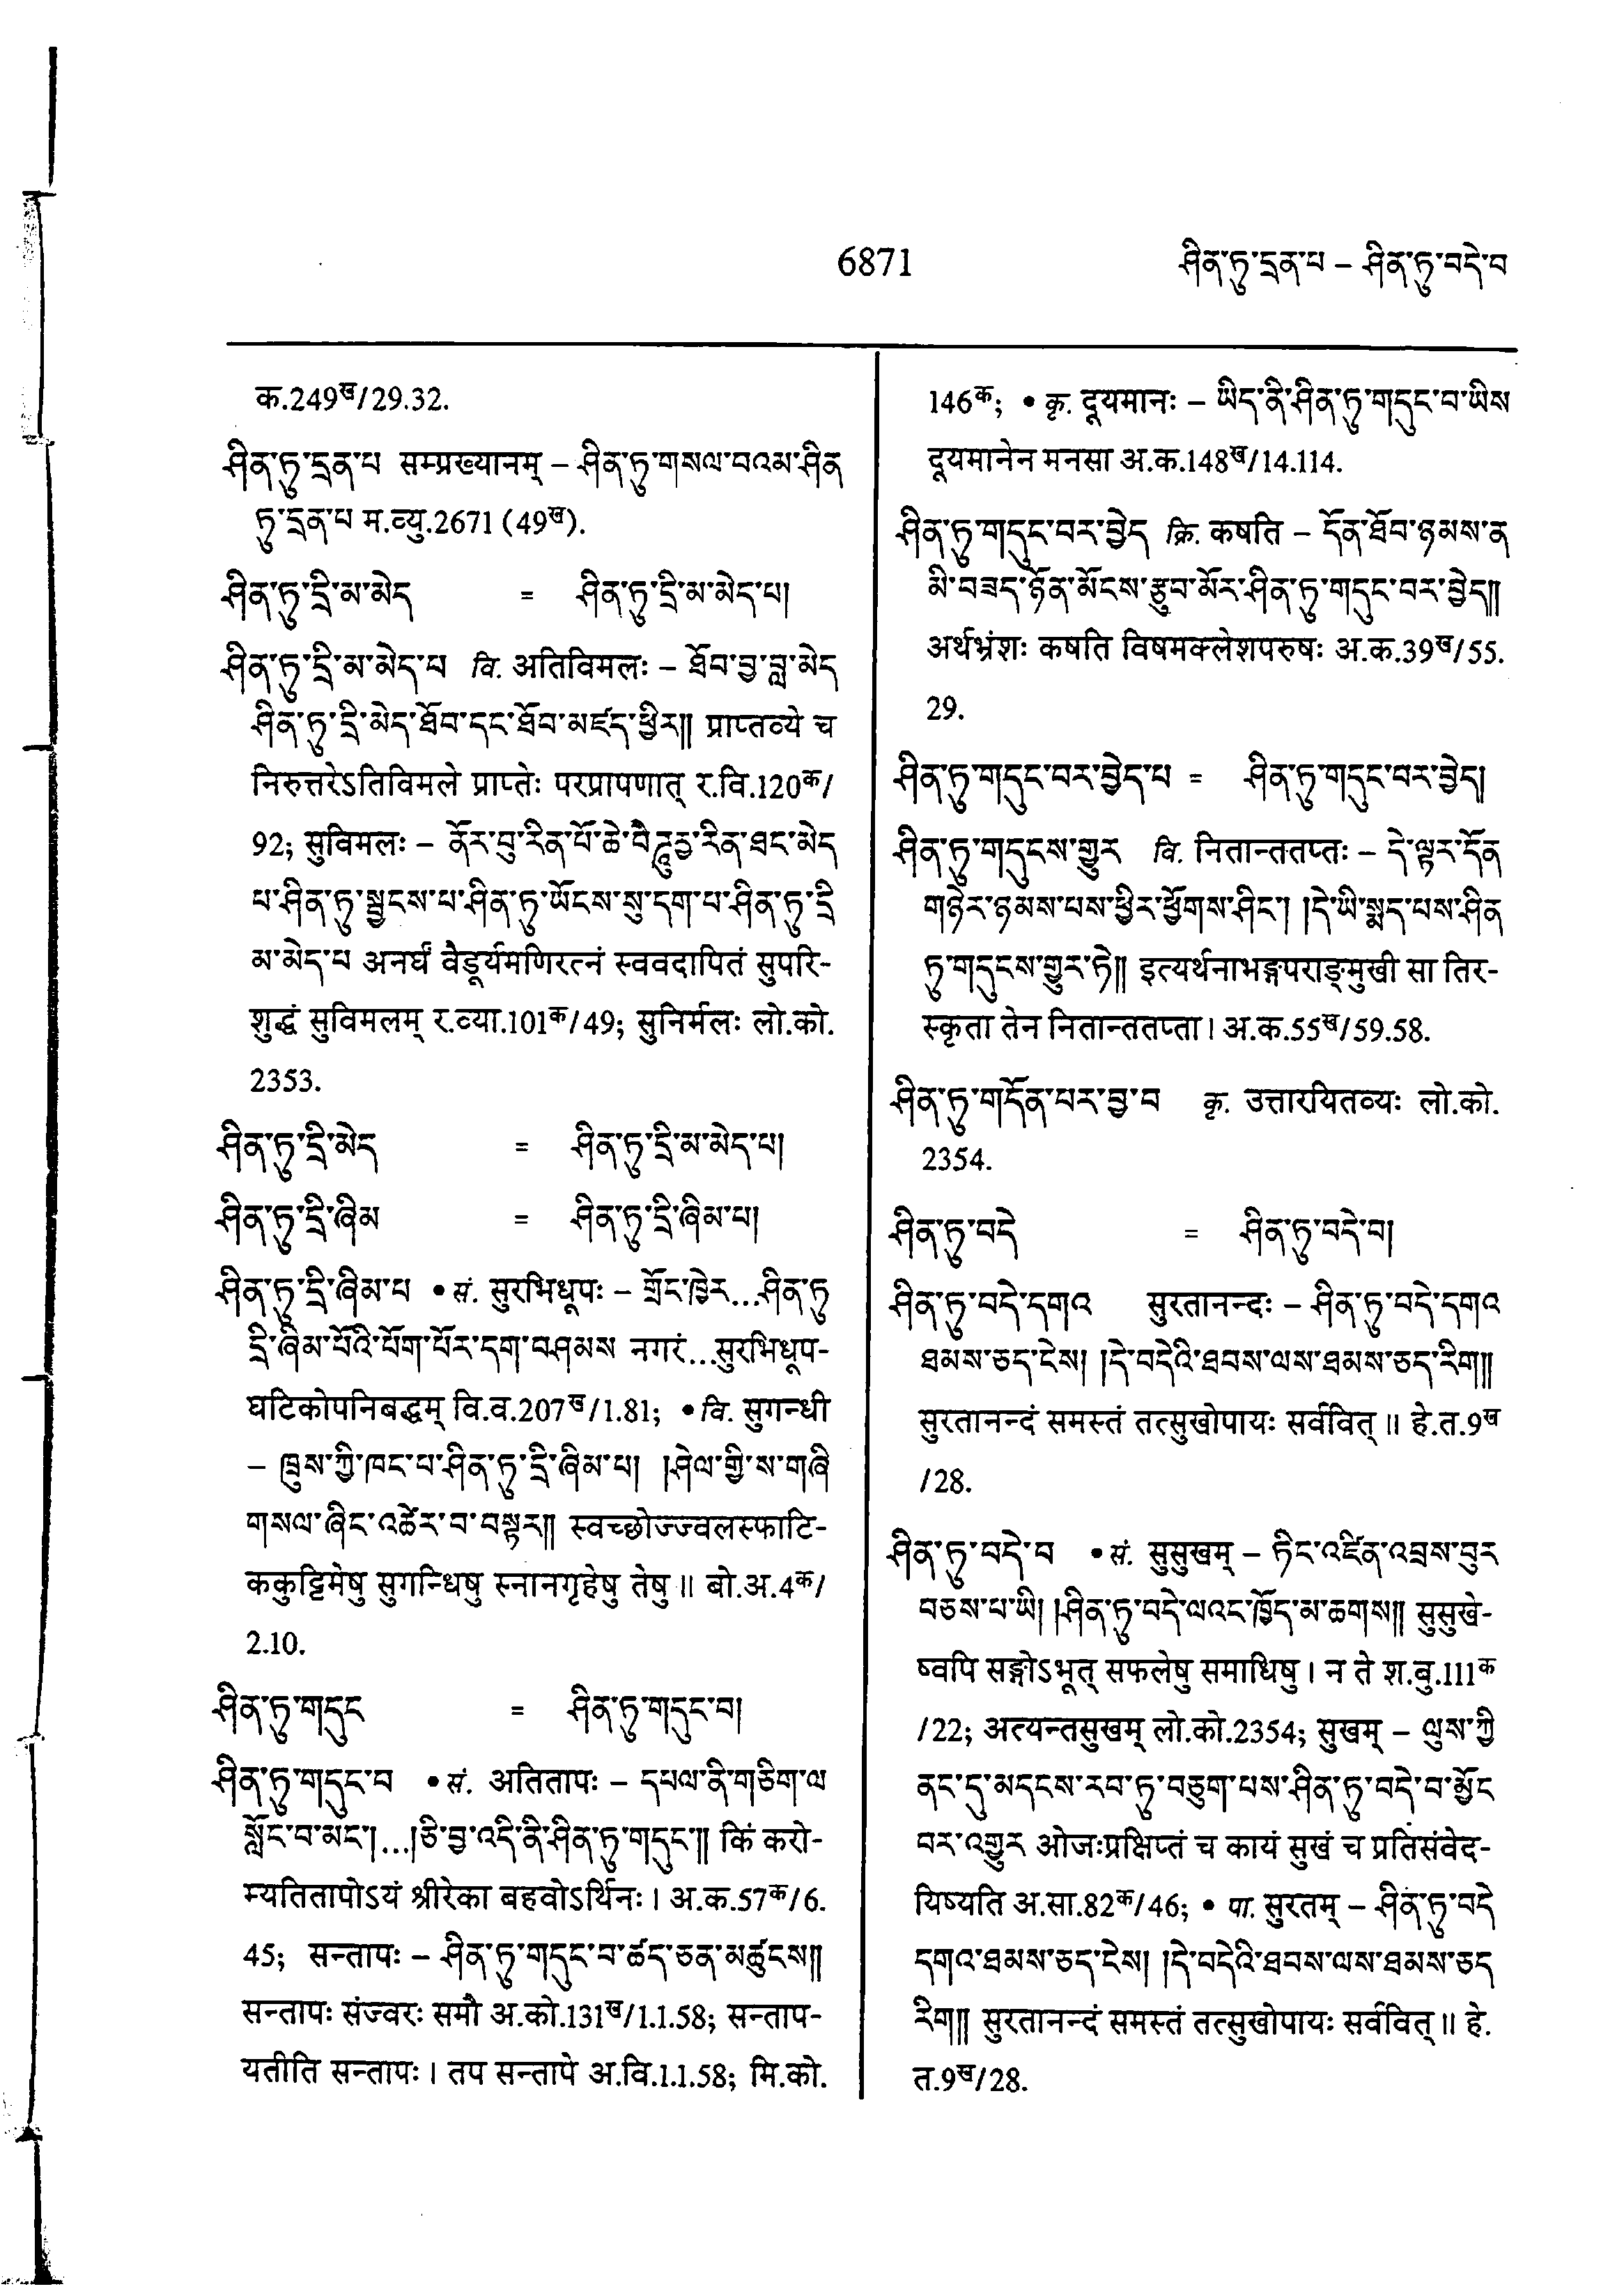 6871
ཤིན་ཏུ་དྲན་པ – ཤིན་ཏུ་བདེ་བ
क.249ख/29.32.
ཤིན་ཏུ་དྲན་པ सम्प्रख्यानम् – ཤིན་ཏུ་གསལ་བའམ་ཤིན
ཏུ་དྲན་པ म.व्यु.2671 (49ख).
ཤིན་ཏུ་དྲི་མ་མེད = ཤིན་ཏུ་དྲི་མ་མེད་པ།
ཤིན་ཏུ་དྲི་མ་མེད་པ वि. अतिविमलः – ཐོབ་བྱ་བླ་མེད
ཤིན་ཏུ་དྲི་མེད་ཐོབ་དང་ཐོབ་མཛད་ཕྱིར།། प्राप्तव्ये च
निरुत्तरेऽतिविमले प्राप्तेः परप्रापणात् र.वि.120क/
92; सुविमलः – ནོར་བུ་རིན་པོ་ཆེ་བཻ་ཌཱུརྱ་རིན་ཐང་མེད
པ་ཤིན་ཏུ་སྦྱངས་པ་ཤིན་ཏུ་ཡོངས་སུ་དག་པ་ཤིན་ཏུ་དྲི
མ་མེད་པ अनर्घं वैडूर्यमणिरत्नं स्ववदापितं सुपरि-
शुद्धं सुविमलम् र.व्या.101क/49; सुनिर्मलः लो.को.
2353.
ཤིན་ཏུ་དྲི་མེད = ཤིན་ཏུ་དྲི་མ་མེད་པ།
ཤིན་ཏུ་དྲི་ཞིམ = ཤིན་ཏུ་དྲི་ཞིམ་པ།
ཤིན་ཏུ་དྲི་ཞིམ་པ • सं. सुरभिधूपः – གྲོང་ཁྱེར...ཤིན་ཏུ
དྲི་ཞིམ་པོའི་པོག་པོར་དག་བཤམས नगरं...सुरभिधूप-
घटिकोपनिबद्धम् वि.व.207ख/1.81; • वि. सुगन्धी
– ཁྲུས་ཀྱི་ཁང་པ་ཤིན་ཏུ་དྲི་ཞིམ་པ། །ཤེལ་གྱི་ས་གཞི
གསལ་ཞིང་འཚེར་བ་བསྟར།། स्वच्छोज्ज्वलस्फाटि-
ककुट्टिमेषु सुगन्धिषु स्नानगृहेषु तेषु ॥ बो.अ.4क/
2.10.
ཤིན་ཏུ་གདུང = ཤིན་ཏུ་གདུང་བ།
ཤིན་ཏུ་གདུང་བ • सं. अतितापः – དཔལ་ནི་གཅིག་ལ
སློང་བ་མང་།...།ཅི་བྱ་འདི་ནི་ཤིན་ཏུ་གདུང་།། किं करो-
म्यतितापोऽयं श्रीरेका बहवोऽर्थिनः । अ.क.57क/6.
45; सन्तापः – ཤིན་ཏུ་གདུང་བ་ཚད་ཅན་མཚུངས།།
सन्तापः संज्वरः समौ अ.को.131ख/1.1.58; सन्ताप-
यतीति सन्तापः । तप सन्तापे अ.वि.1.1.58; मि.को.
146क; • कृ. दूयमानः – ཡིད་ནི་ཤིན་ཏུ་གདུང་བ་ཡིས
दूयमानेन मनसा अ.क.148ख/14.114.
ཤིན་ཏུ་གདུང་བར་བྱེད क्रि. कषति – དོན་ཐོབ་ཉམས་ན
མི་བཟད་ཉོན་མོངས་རྩུབ་མོར་ཤིན་ཏུ་གདུང་བར་བྱེད།།
अर्थभ्रंशः कषति विषमक्लेशपरुषः अ.क.39ख/55.
29.
ཤིན་ཏུ་གདུང་བར་བྱེད་པ = ཤིན་ཏུ་གདུང་བར་བྱེད།
ཤིན་ཏུ་གདུངས་གྱུར वि. नितान्ततप्तः – དེ་ལྟར་དོན
གཉེར་ཉམས་པས་ཕྱིར་ཕྱོགས་ཤིང་། །དེ་ཡི་སྨད་པས་ཤིན
ཏུ་གདུངས་གྱུར་ཏེ།། इत्यर्थनाभङ्गपराङ्मुखी सा तिर-
स्कृता तेन नितान्ततप्ता । अ.क.55ख/59.58.
ཤིན་ཏུ་གདོན་པར་བྱ་བ कृ. उत्तारयितव्यः लो.को.
2354.
ཤིན་ཏུ་བདེ = ཤིན་ཏུ་བདེ་བ།
ཤིན་ཏུ་བདེ་དགའ सुरतानन्दः – ཤིན་ཏུ་བདེ་དགའ
ཐམས་ཅད་ངེས། །དེ་བདེའི་ཐབས་ལས་ཐམས་ཅད་རིག།།
सुरतानन्दं समस्तं तत्सुखोपायः सर्ववित् ॥ हे.त.9ख
/28.
ཤིན་ཏུ་བདེ་བ • सं. सुसुखम् – ཏིང་འཛིན་འབྲས་བུར
བཅས་པ་ཡི། །ཤིན་ཏུ་བདེ་ལའང་ཁྱོད་མ་ཆགས།། सुसुखे-
ष्वपि सङ्गोऽभूत् सफलेषु समाधिषु । न ते श.बु.111क
/22; अत्यन्तसुखम् लो.को.2354; सुखम् – ལུས་ཀྱི
ནང་དུ་མདངས་རབ་ཏུ་བཅུག་པས་ཤིན་ཏུ་བདེ་བ་མྱོང
བར་འགྱུར ओजःप्रक्षिप्तं च कायं सुखं च प्रतिसंवेद-
यिष्यति अ.सा.82क/46; • पा. सुरतम् – ཤིན་ཏུ་བདེ
དགའ་ཐམས་ཅད་ངེས། །དེ་བདེའི་ཐབས་ལས་ཐམས་ཅད
རིག།། सुरतानन्दं समस्तं तत्सुखोपायः सर्ववित् ॥ हे.
त.9ख/28.